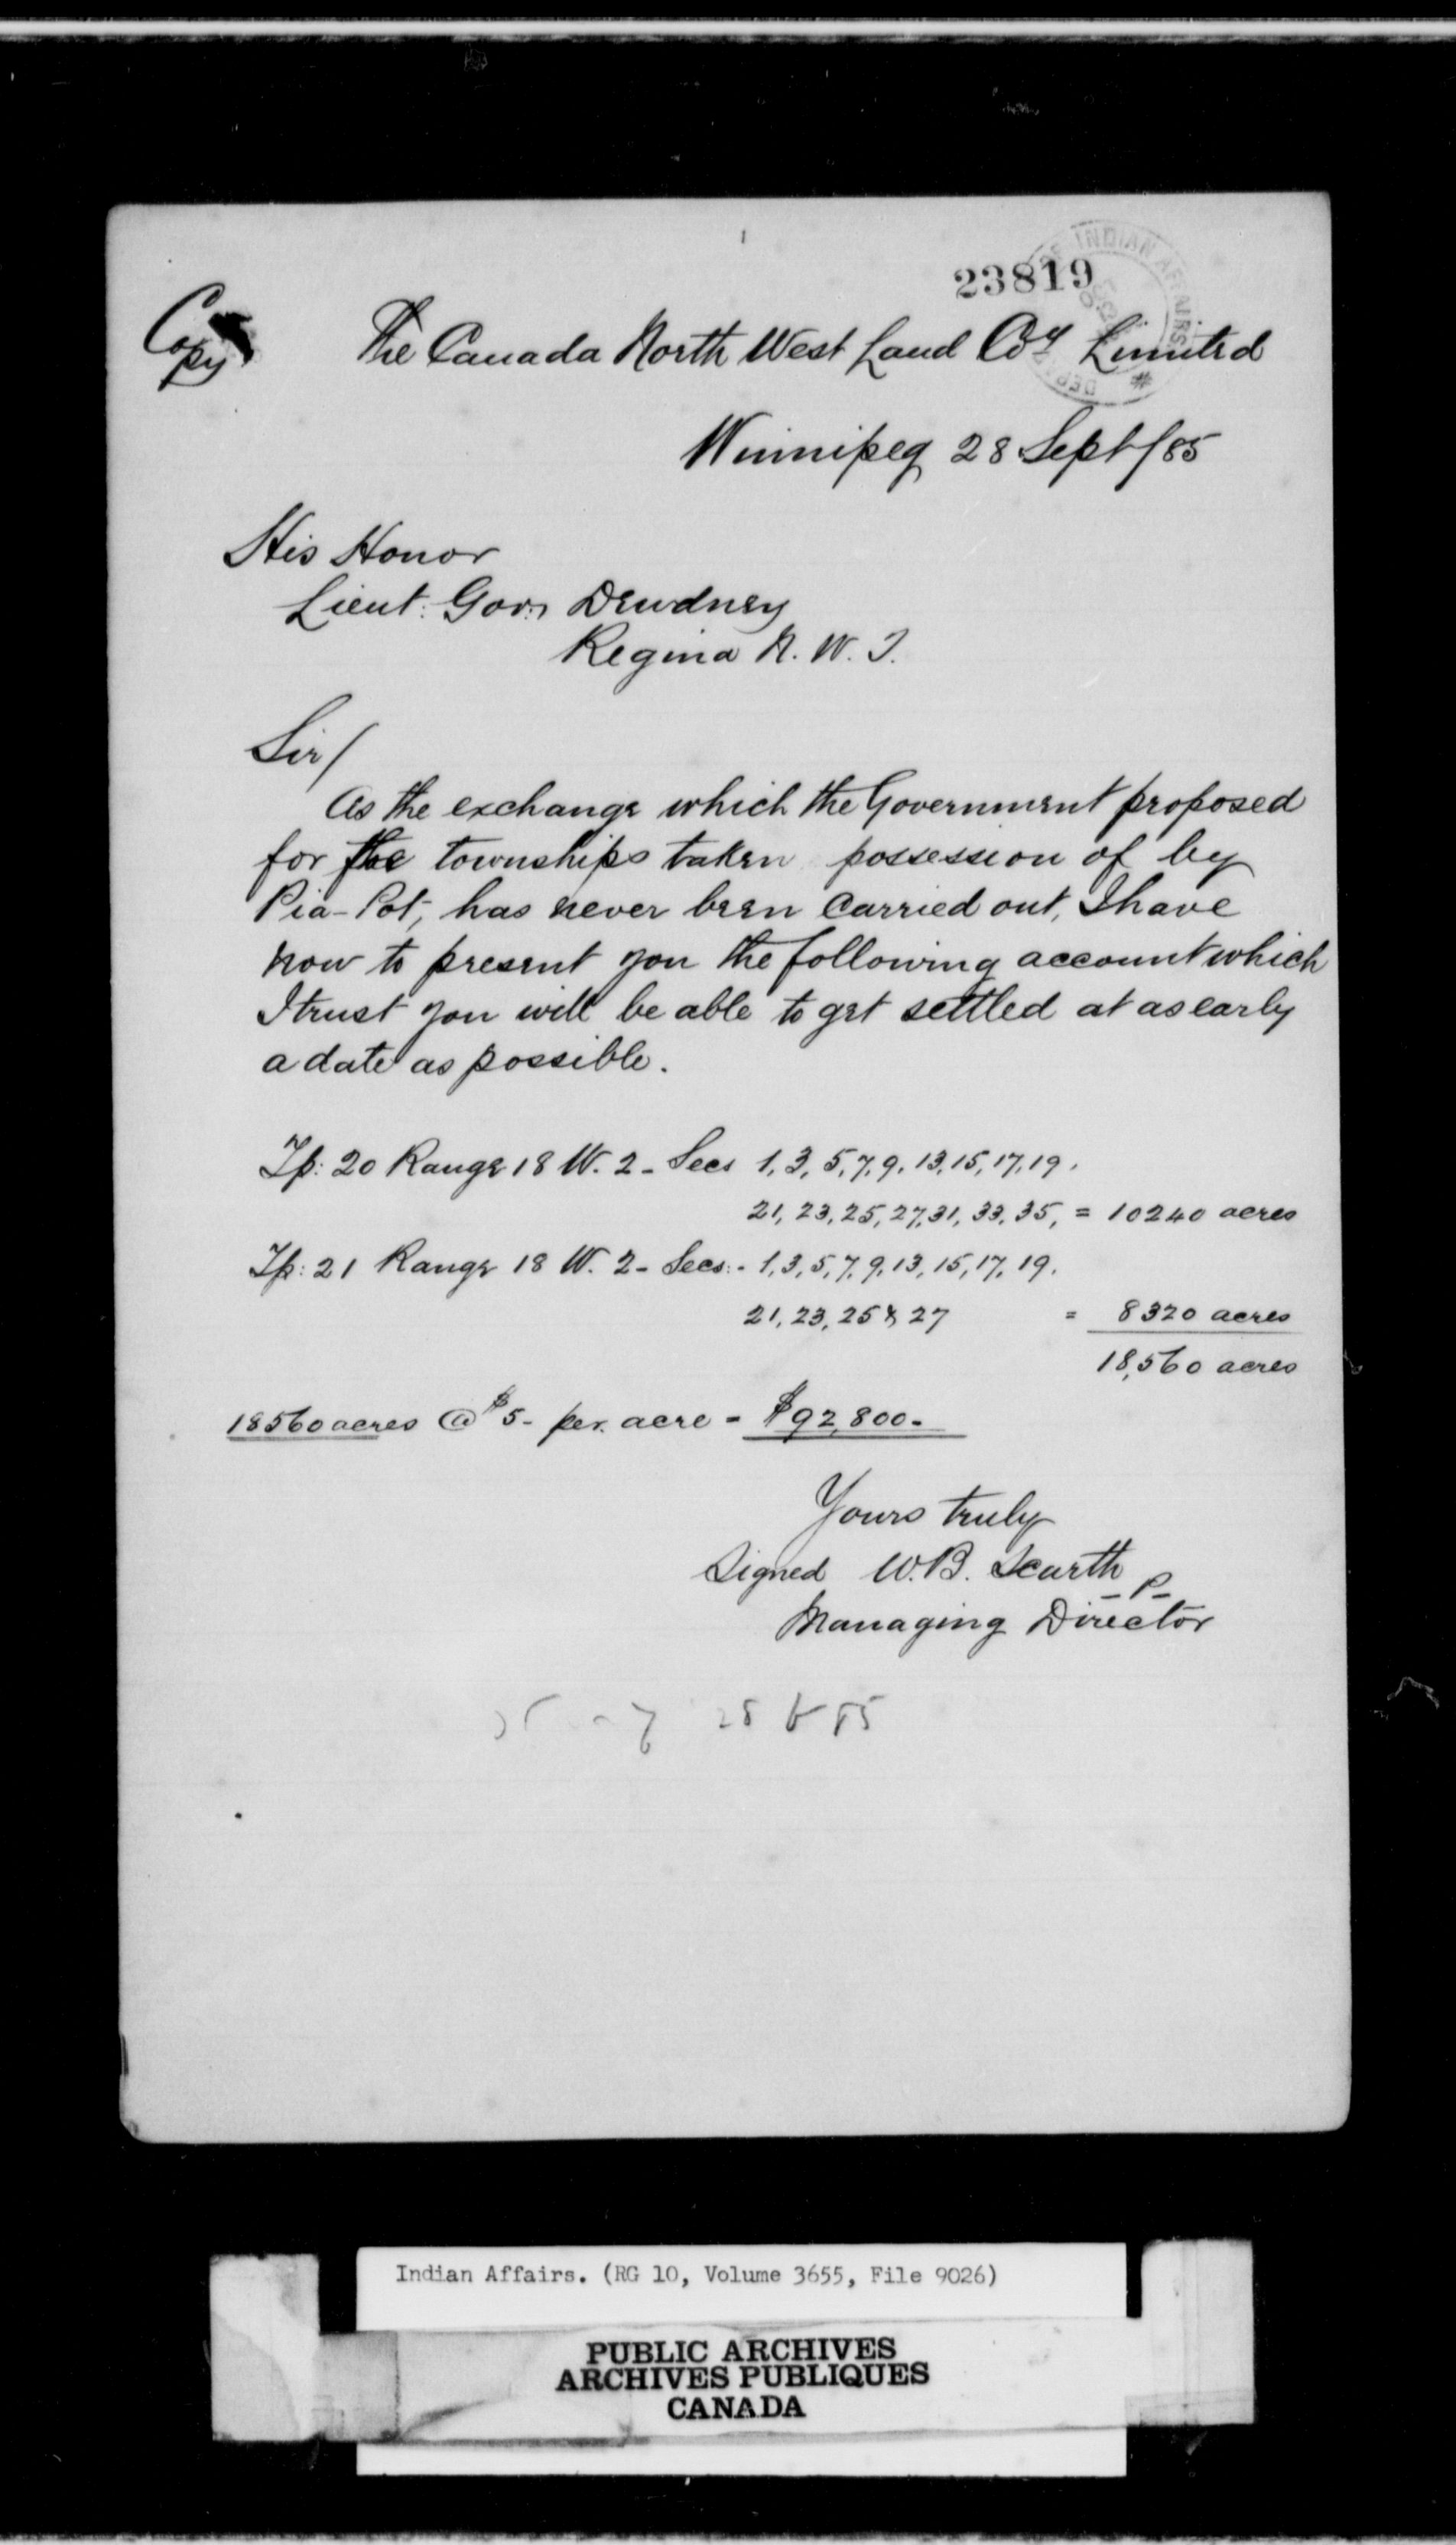 23819
Copy
The Canada North West Land Coy Limited
Winnipeg 28 Sept/85
His Honor
Lieut: Gov: Dewdney
Regina N. W. T.
Sir/
As the exchange which the Government proposed
for the townships taken possession of by
Pia-Pot, has never been carried out, I have
now to present you the following account which
I trust you will be able to get settled at as early
a date as possible.
Tp: 20 Range 18 W. 2 - Secs 1, 3, 5, 7, 9, 13, 15, 17, 19.
21, 23, 25, 27, 31, 33, 35, = 10240 acres
Tp: 21 Range 18 W. 2 - Secs: - 1, 3, 5, 7, 9, 13, 15, 17, 19.
21, 23, 25 & 27 = 8320 acres
18,560 acres
18560 acres @ $5- per acre = $92,800-
Yours truly
Signed W.B. Scarth
Managing Director
Indian Affairs. (RG 10, Volume 3655, File 9026)
PUBLIC ARCHIVES
ARCHIVES PUBLIQUES
CANADA